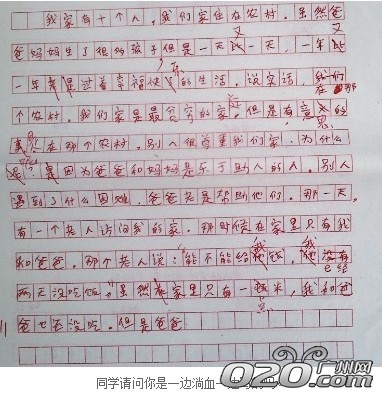 我家有十个人，我们家住在农村。虽然爸
爸妈妈生了很多孩子但是一天又一天，一年又
一年是过着幸福快乐的生活。说实话，我们在那
个农村，我们家是最穷的家庭。但是有意思的
是在那个农村，别人很尊重我们家。为什么
呢？是因为爸爸和妈妈是乐于助人的人。别人
遇到了什么困难，爸爸老是帮助他们。那一天，
有一个老人访问我的家。那时候在家里只有我
和爸爸。那个老人说："能不能给我钱，我
两天没吃饭。"虽然家里只有一点米，我和爸
爸也还没吃。但是爸爸
同学请问你是一边淌血一
020
广州网
.com